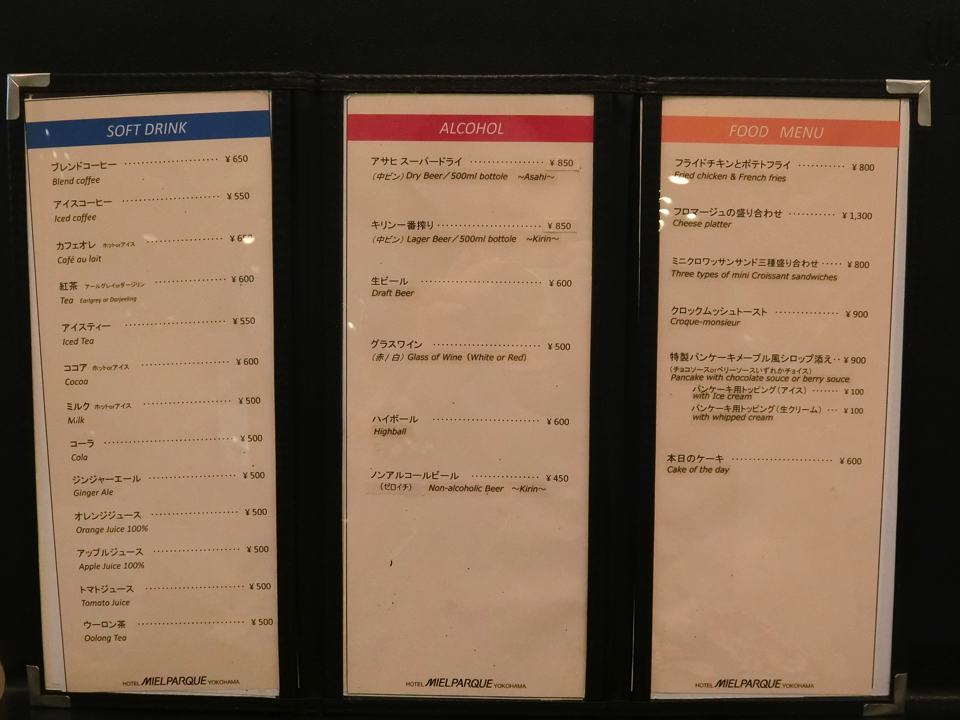 SOFT DRINK
ブレンドコーヒー ¥650
Blend coffee
アイスコーヒー ¥550
Iced coffee
カフェオレ ホットorアイス
Café au lait
紅茶 アールグレイorダージリン ¥600
Tea Earlgrey or Darjeeling
アイスティー ¥550
Iced Tea
ココア ホットorアイス ¥600
Cocoa
ミルク ホットorアイス ¥500
Milk
コーラ ¥500
Cola
ジンジャーエール ¥500
Ginger Ale
オレンジジュース ¥500
Orange Juice 100%
アップルジュース ¥500
Apple Juice 100%
トマトジュース ¥500
Tomato Juice
ウーロン茶 ¥500
Oolong Tea
HOTEL MIELPARQUE YOKOHAMA
ALCOHOL
アサヒ スーパードライ ¥850
(中ビン) Dry Beer/500ml bottole ~Asahi~
キリン一番搾り ¥850
(中ビン) Lager Beer/500ml bottole ~Kirin~
生ビール ¥600
Draft Beer
グラスワイン ¥500
(赤/白) Glass of Wine (White or Red)
ハイボール ¥600
Highball
ノンアルコールビール ¥450
(ゼロイチ) Non-alcoholic Beer ~Kirin~
HOTEL MIELPARQUE YOKOHAMA
FOOD MENU
フライドチキンとポテトフライ ¥800
Fried chicken & French fries
フロマージュの盛り合わせ ¥1,300
Cheese platter
ミニクロワッサンサンド三種盛り合わせ ¥800
Three types of mini Croissant sandwiches
クロックムッシュトースト ¥900
Croque-monsieur
特製パンケーキメープル風シロップ添え ¥900
(チョコソースorベリーソースいずれかチョイス)
Pancake with chocolate souce or berry souce
パンケーキ用トッピング(アイス) ¥100
with Ice cream
パンケーキ用トッピング(生クリーム) ¥100
with whipped cream
本日のケーキ ¥600
Cake of the day
HOTEL MIELPARQUE YOKOHAMA